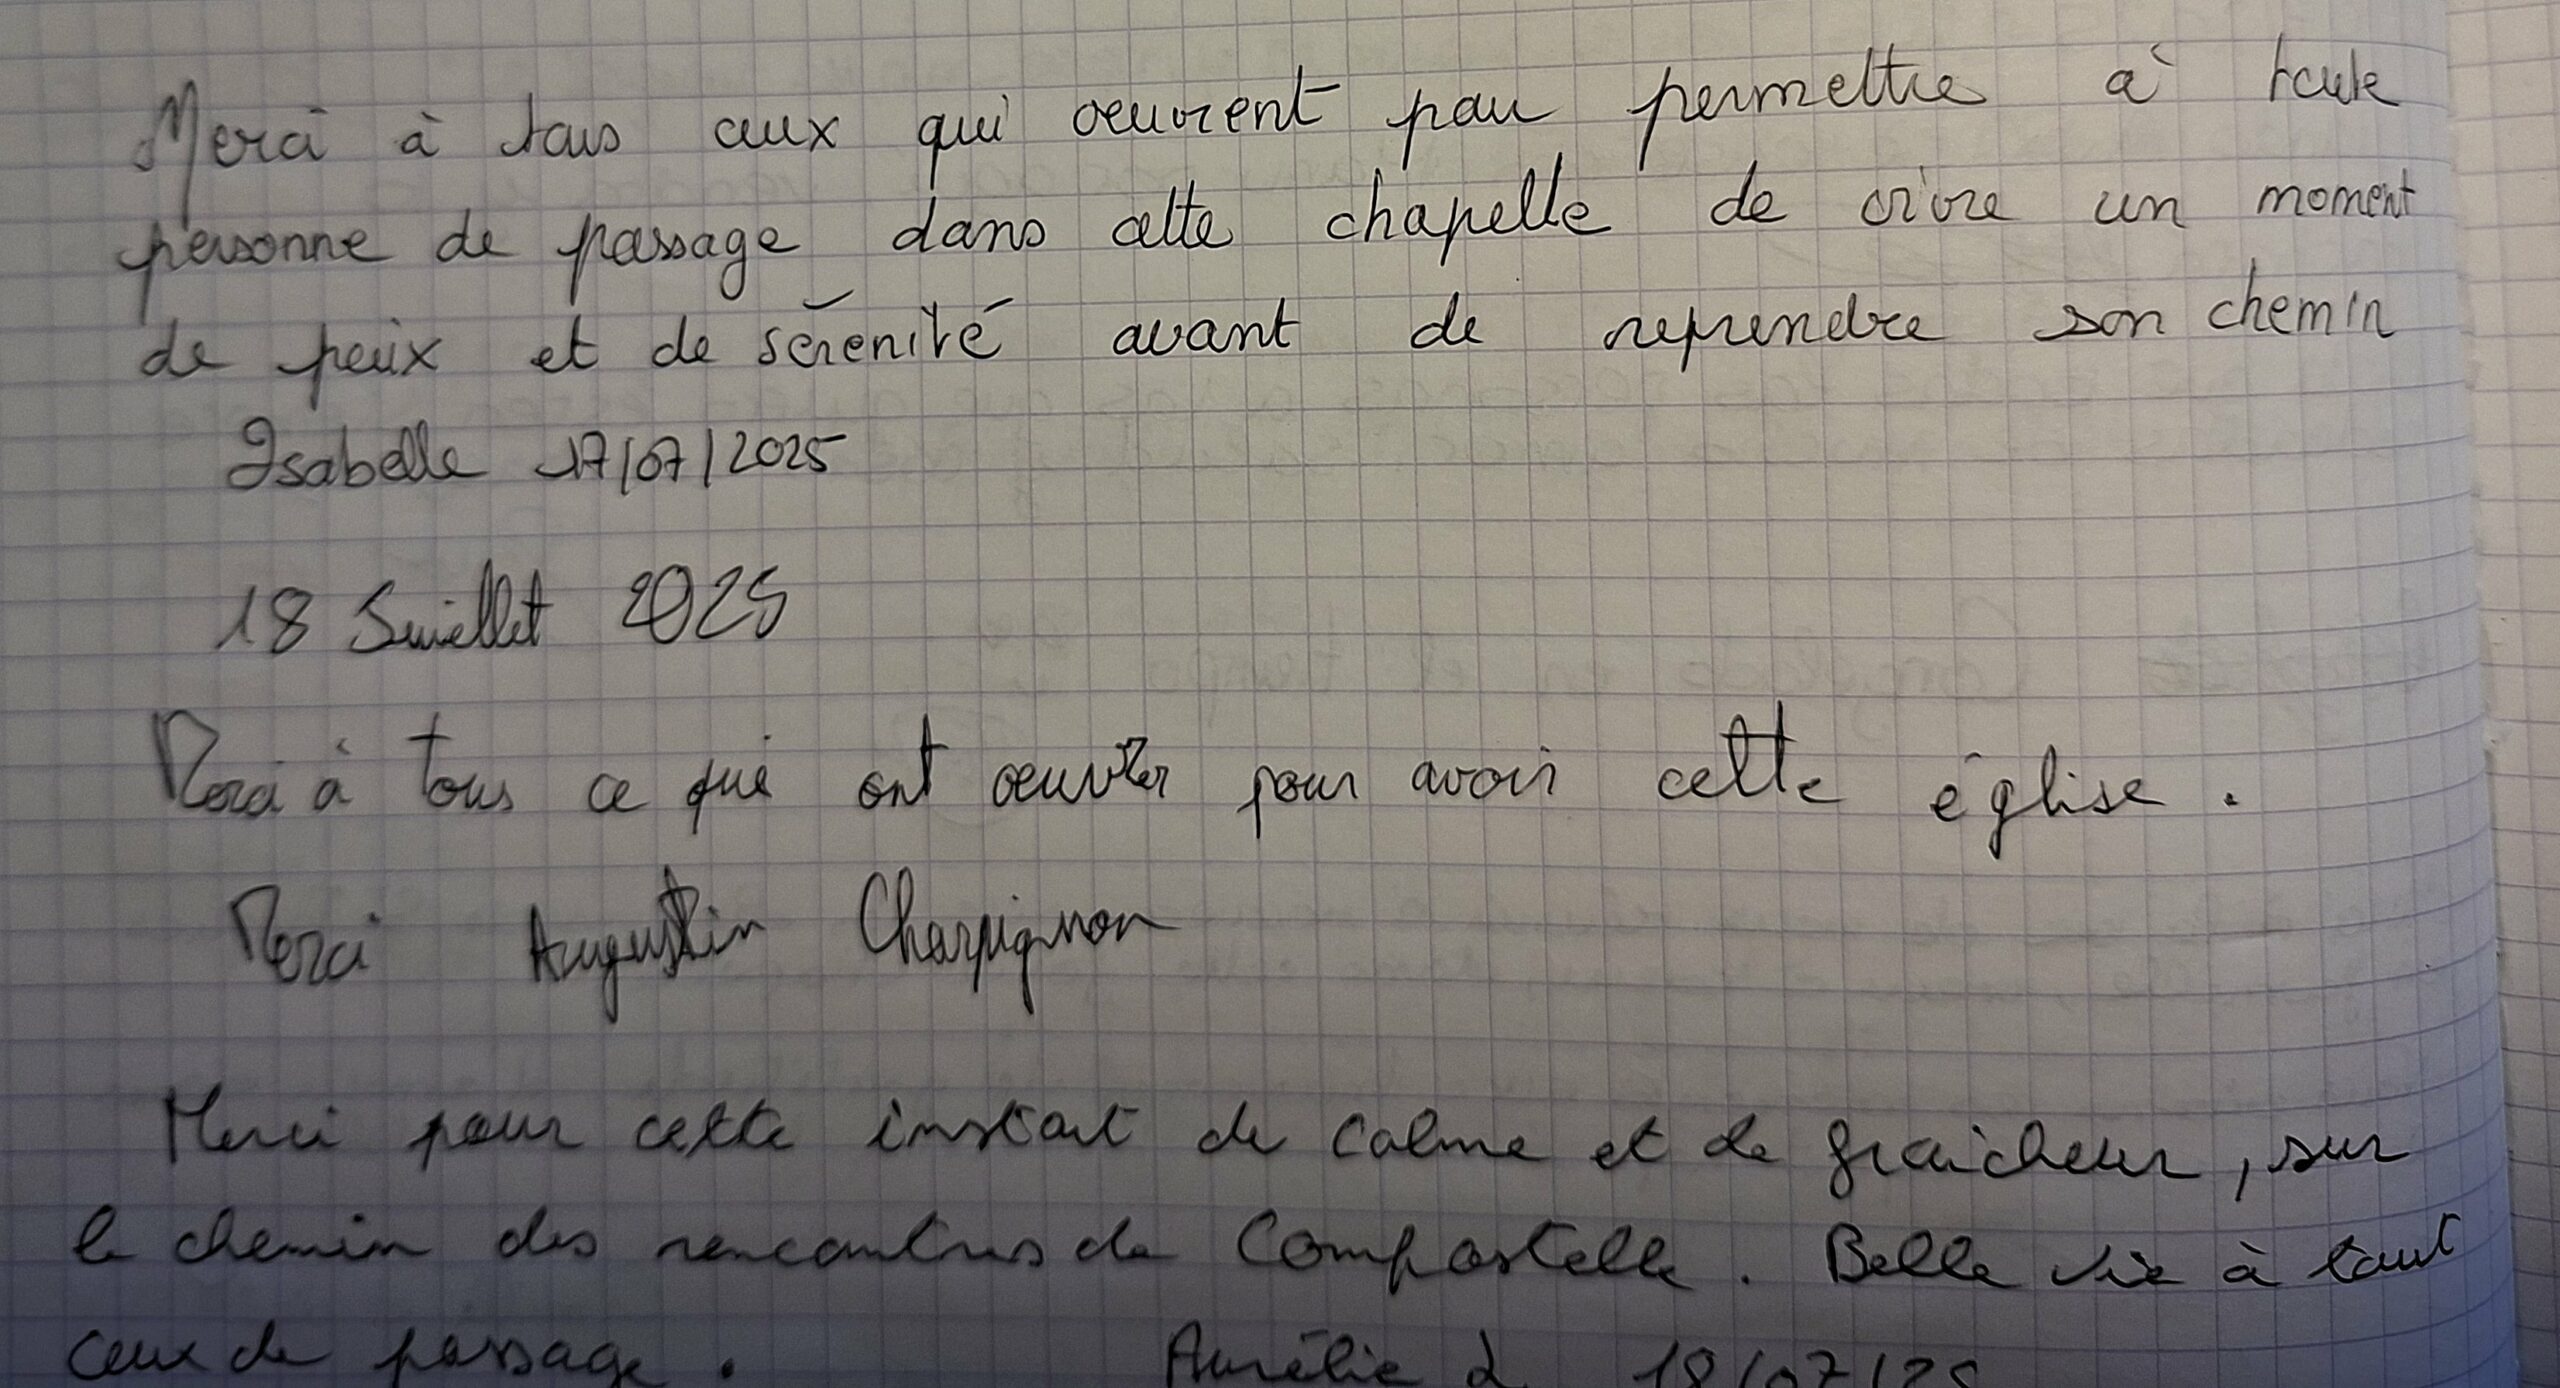 Merci à tous ceux qui oeuvrent pour permettre à toute
personne de passage dans cette chapelle de vivre un moment
de paix et de sérénité avant de reprendre son chemin
Isabelle 17/07/2025
18 Juillet 2025
Merci à tous ce qui ont oeuvrer pour avoir cette église.
Merci Augustin Charpignon
Merci pour cette instant de calme et de fraîcheur, sur
le chemin des rencontres de Compostelle. Belle vie à tout
ceux de passage. Aurélie 18/07/25